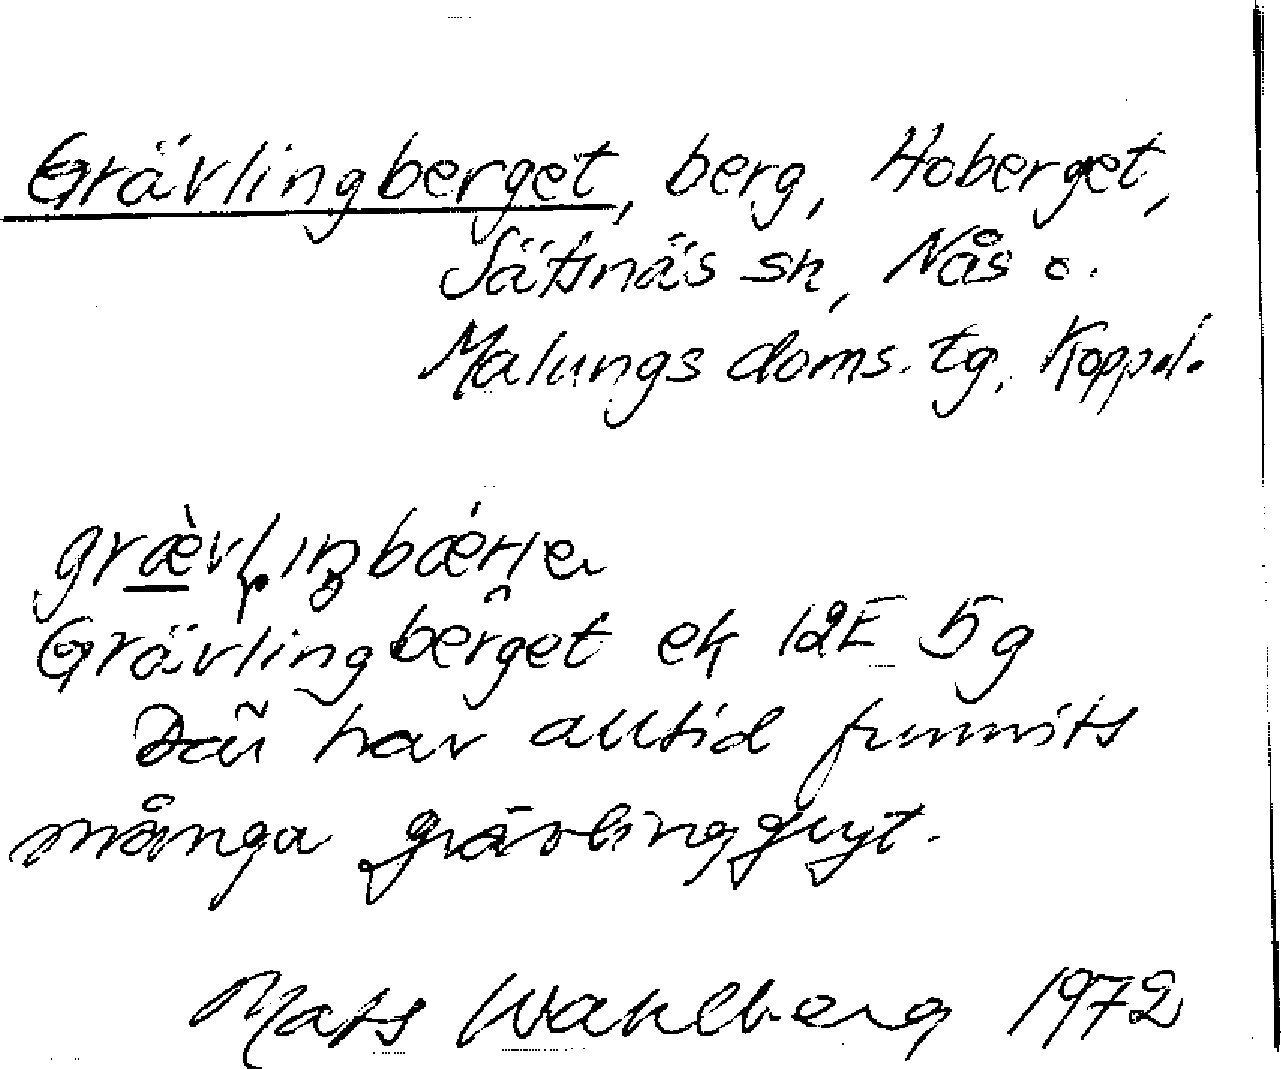 Grävlingberget, berg, Hoberget,
Sätsnäs sn, Nås o.
Malungs doms. tg, Koppal.
Grävlingberget ek 12E 5g
Där har alltid funnits
många grävlinggryt.
Mats Wahlberg 1972